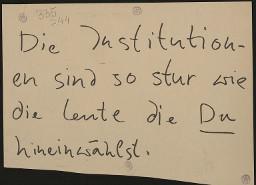 335
-44
Die Institution-
en sind so stur wie
die Leute die Du
hineinwählst.